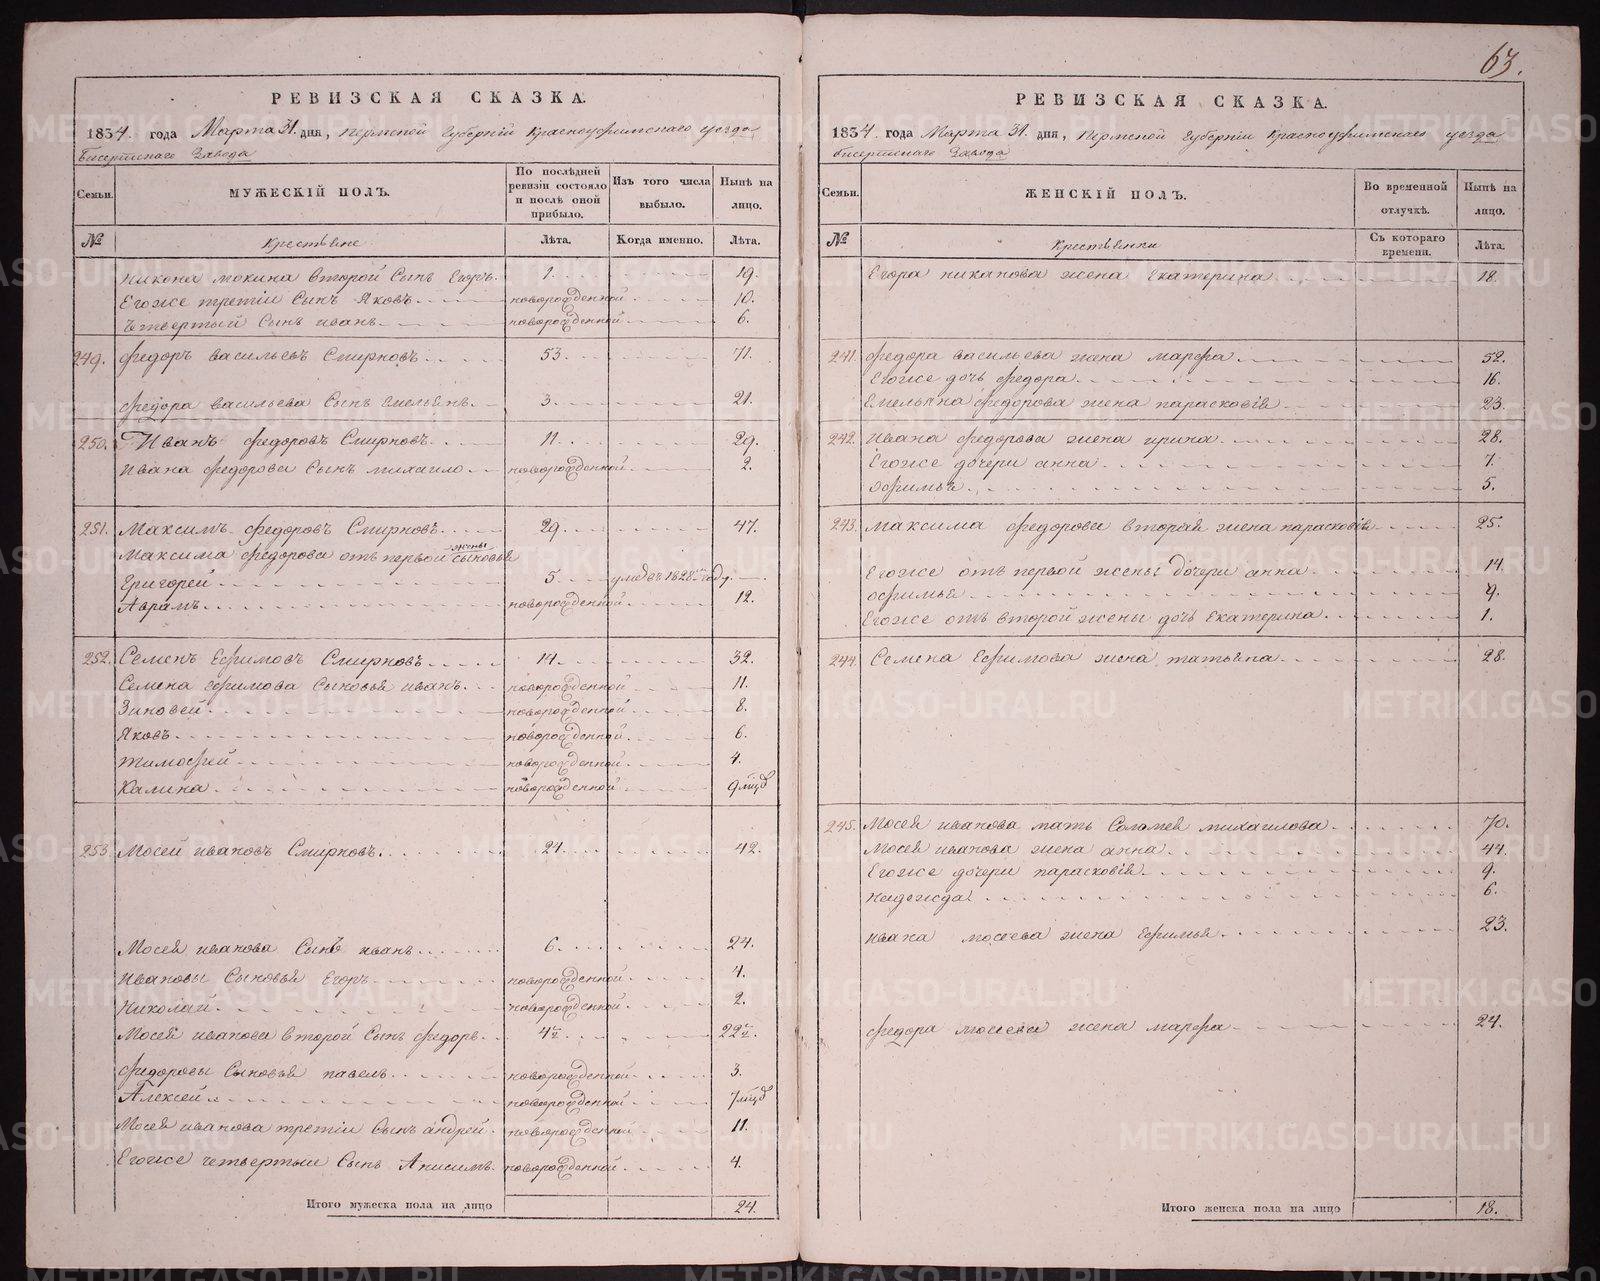 63.
РЕВИЗСКАЯ СКАЗКА.
1834. года Марта 31. дня, Пермской Губерніи Красноуфимскаго уезда
Бисертскаго Завода
Семьи.
МУЖЕСКІЙ ПОЛЪ.
По послѣдней ревизіи состояло и послѣ оной прибыло.
Изъ того числа выбыло.
Нынѣ на лицо.
№
Крестьяне
Лѣта.
Когда именно.
Лѣта.
Никона Мокина второй Сынъ Егоръ. 1. 19.
Егоже третіи Сынъ Яковъ новорожденной 10.
Четвертый Сынъ иванъ новорожденной 6.
249. Федоръ васильевъ Смирновъ 53. 71.
Федора васильева Сынъ Емельянъ. 3. 21.
250. Иванъ федоровъ Смирновъ. 11. 29.
Ивана федорова Сынъ михаило новорожденной 2.
251. Максимъ федоровъ Смирновъ. 29. 47.
Максима федорова отъ первой жены Сыновья
Григорей 5. умре въ 1828 году
Аврамъ новорожденной 12.
252. Семенъ Ефимовъ Смирновъ 14. 32.
Семена Ефимова Сыновья иванъ новорожденной 11.
Зиновей новорожденной 8.
Яковъ новорожденной 6.
тимофей новорожденной 4.
Калина новорожденной 9 мцъ
253. Мосей ивановъ Смирновъ. 24. 42.
Мосея иванова Сынъ иванъ 6. 24.
Ивановы Сыновья Егоръ новорожденной 4.
Николай новорожденной 2.
Мосея иванова второй Сынъ федоръ 4½ 22½
федоровы Сыновья павелъ новорожденной 3.
Алексей новорожденной 7 мцъ
Мосея иванова третіи Сынъ андрей новорожденной 11.
Егоже четвертыи Сынъ Анисимъ новорожденной 4.
Итого мужеска пола на лицо 24.
РЕВИЗСКАЯ СКАЗКА.
1834. года Марта 31. дня, Пермской Губерніи Красноуфимскаго уезда
бисертскаго Завода
Семьи.
ЖЕНСКІЙ ПОЛЪ.
Во временной отлучкѣ.
Нынѣ на лицо.
№
Крестьянки
Съ котораго времени.
Лѣта.
Егора никанова жена Екатерина 18.
241. федора васильева жена марфа 52.
Егоже дочь федора 16.
Емельяна федорова жена парасковія 23.
242. Ивана федорова жена ирина 28.
Егоже дочери анна 7.
Афимья 5.
243. Максима федорова вторая жена парасковія 25.
Егоже отъ первой жены дочери анна 14.
офимья 9.
Егоже отъ второй жены дочь Екатерина 1.
244. Семена Ефимова жена татьяна 28.
245. Мосея иванова мать Соломея михаилова 70.
Мосея иванова жена анна 44.
Егоже дочери парасковія 9.
надежда 6.
ивана мосеева жена Ефимья 23.
федора мосеева жена марфа 24.
Итого женска пола на лицо 18.
METRIKI.GASO-URAL.RU